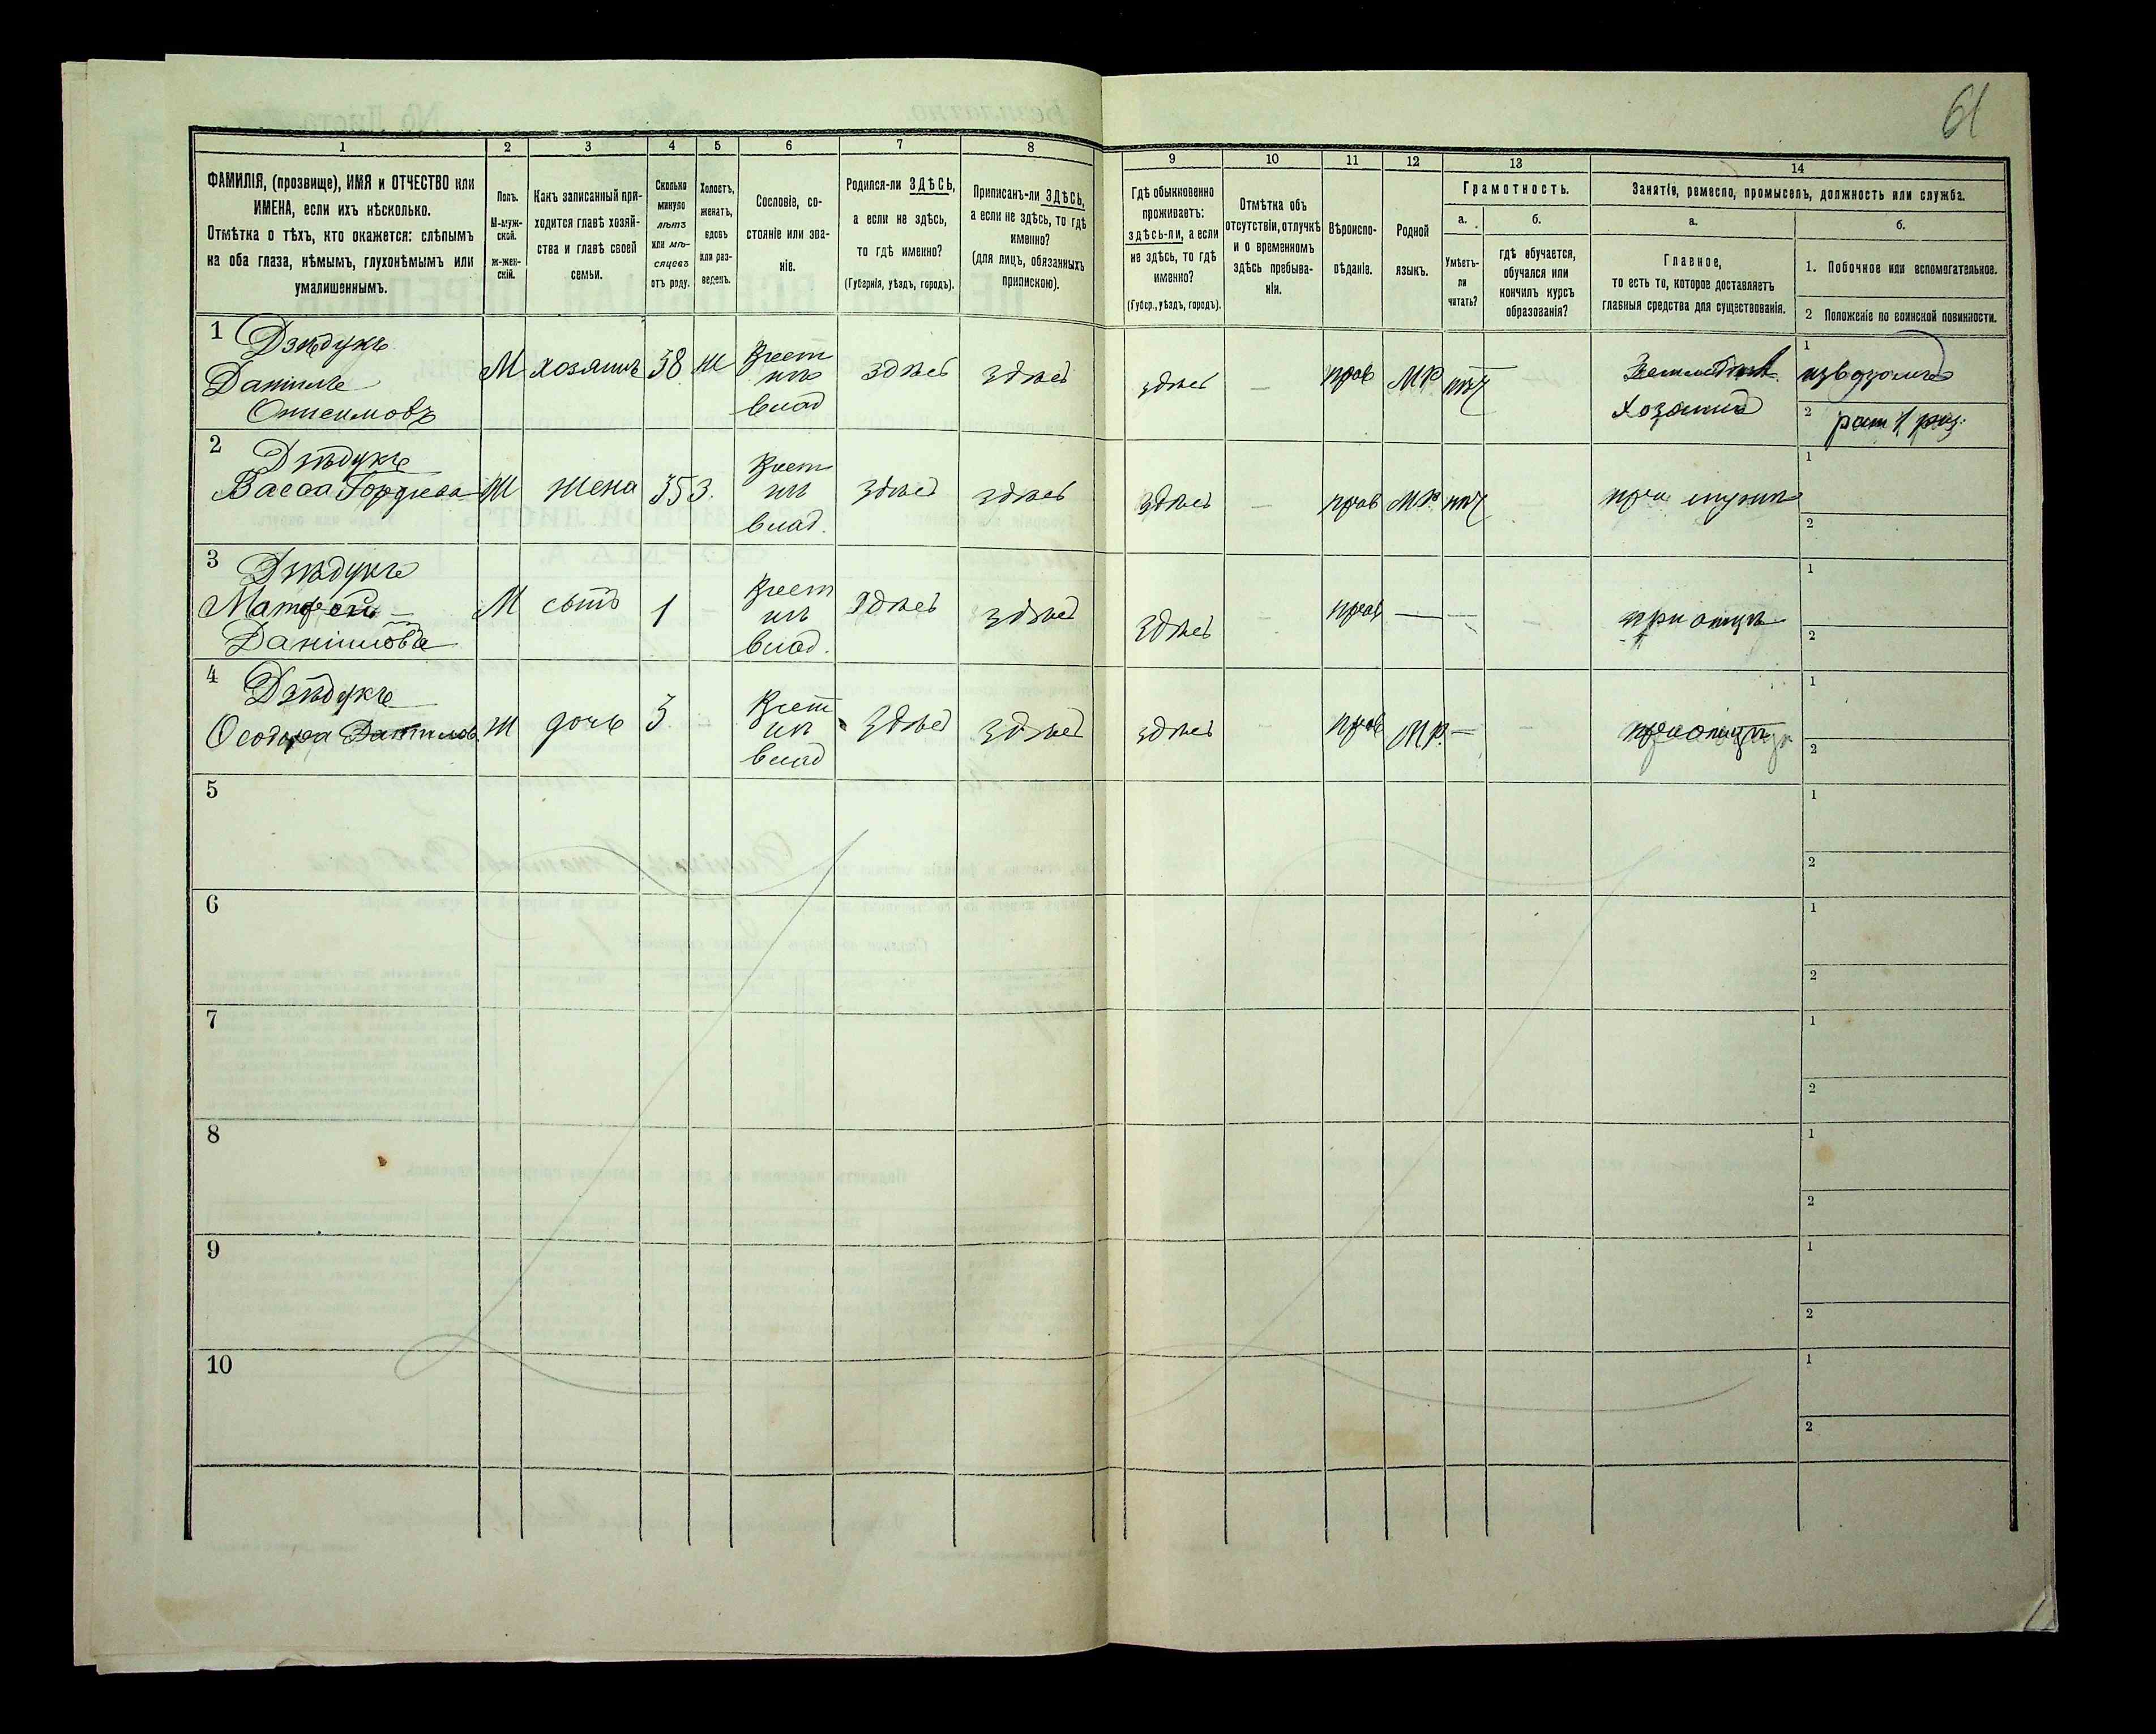 61
1
2
3
4
5
6
7
8
9
10
11
12
13
14
ФАМИЛІЯ, (прозвище), ИМЯ и ОТЧЕСТВО или
ИМЕНА, если ихъ нѣсколько.
Отмѣтка о тѣхъ, кто окажется: слѣпымъ
на оба глаза, нѣмымъ, глухонѣмымъ или
умалишеннымъ.
Полъ.
М-муж-
ской.
Ж-жен-
скій.
Какъ записанный при-
ходится главѣ хозяй-
ства и главѣ своей
семьи.
Сколько
минуло
лѣтъ
или мѣ-
сяцевъ
отъ роду.
Холостъ,
женатъ,
вдовъ
или раз-
веденъ.
Сословіе, со-
стояніе или зва-
ніе.
Родился-ли ЗДѢСЬ,
а если не здѣсь,
то гдѣ именно?
(Губернія, уѣздъ, городъ).
Приписанъ-ли ЗДѢСЬ,
а если не здѣсь, то гдѣ
именно?
(для лицъ, обязанныхъ
припискою).
Гдѣ обыкновенно
проживаетъ:
здѣсь-ли, а если
не здѣсь, то гдѣ
именно?
(Губер., уѣздъ, городъ).
Отмѣтка объ
отсутствіи, отлучкѣ
и о временномъ
здѣсь пребыва-
ніи.
Вѣроиспо-
вѣданіе.
Родной
языкъ.
Грамотность.
а.
Умѣетъ-
ли
читать?
б.
гдѣ обучается,
обучался или
кончилъ курсъ
образованія?
Занятіе, ремесло, промыселъ, должность или служба.
а.
Главное,
то есть то, которое доставляетъ
главныя средства для существованія.
б.
1. Побочное или вспомогательное.
2 Положеніе по воинской повинности.
1
Даніилъ
Онисимовъ
М
хозяинъ
38
ж
влад
здѣсь
здѣсь
здѣсь
—
прав
М.Р.
Хозяинъ
1
2
2
Васса Гордіева
Ж
жена
35
з.
влад.
здѣсь
здѣсь
здѣсь
—
прав
М.Р.
1
2
3
Матфей
Даніиловъ
М
сынъ
1
влад.
здѣсь
здѣсь
здѣсь
—
прав
—
—
при отцѣ
1
2
4
Ж
дочь
3
влад
здѣсь
здѣсь
здѣсь
—
прав
М.Р.
—
при отцѣ
1
2
5
1
2
6
1
2
7
1
2
8
1
2
9
1
2
10
1
2